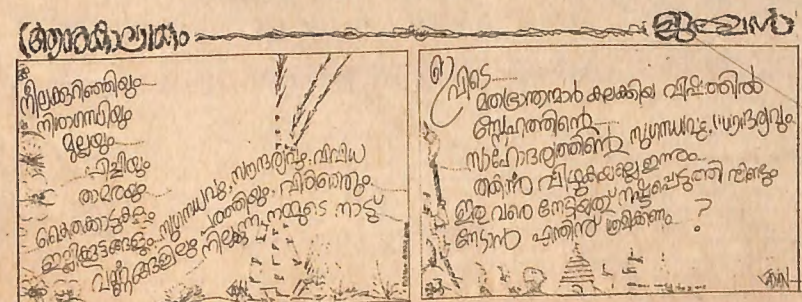 ആനുകാലികം
നീലക്കുറിഞ്ഞിയും
നിശാഗന്ധിയും
മുല്ലയും
പിച്ചിയും
താമരയും
കൈതക്കാടുകളും
ഇല്ലിക്കൂട്ടങ്ങളും സുഗന്ധവും, സൗന്ദര്യവും, വിവിധ
വർണ്ണങ്ങളിലും പരത്തിയും, വിരിഞ്ഞും
നില്ക്കുന്ന നമ്മുടെ നാട്
ഇവിടെ
മതഭ്രാന്തന്മാർ കലക്കിയ വിഷത്തിൽ
സ്നേഹത്തിന്റെ
സാഹോദര്യത്തിന്റെ സുഗന്ധവും, സൗന്ദര്യവും
തകർന്നു വീഴുകയല്ലേ ഇന്നും
ഇതു വരെ നേടിയത് നഷ്ടപ്പെടുത്തി വീണ്ടും
നേടാൻ എന്തിന് ശ്രമിക്കണം ?